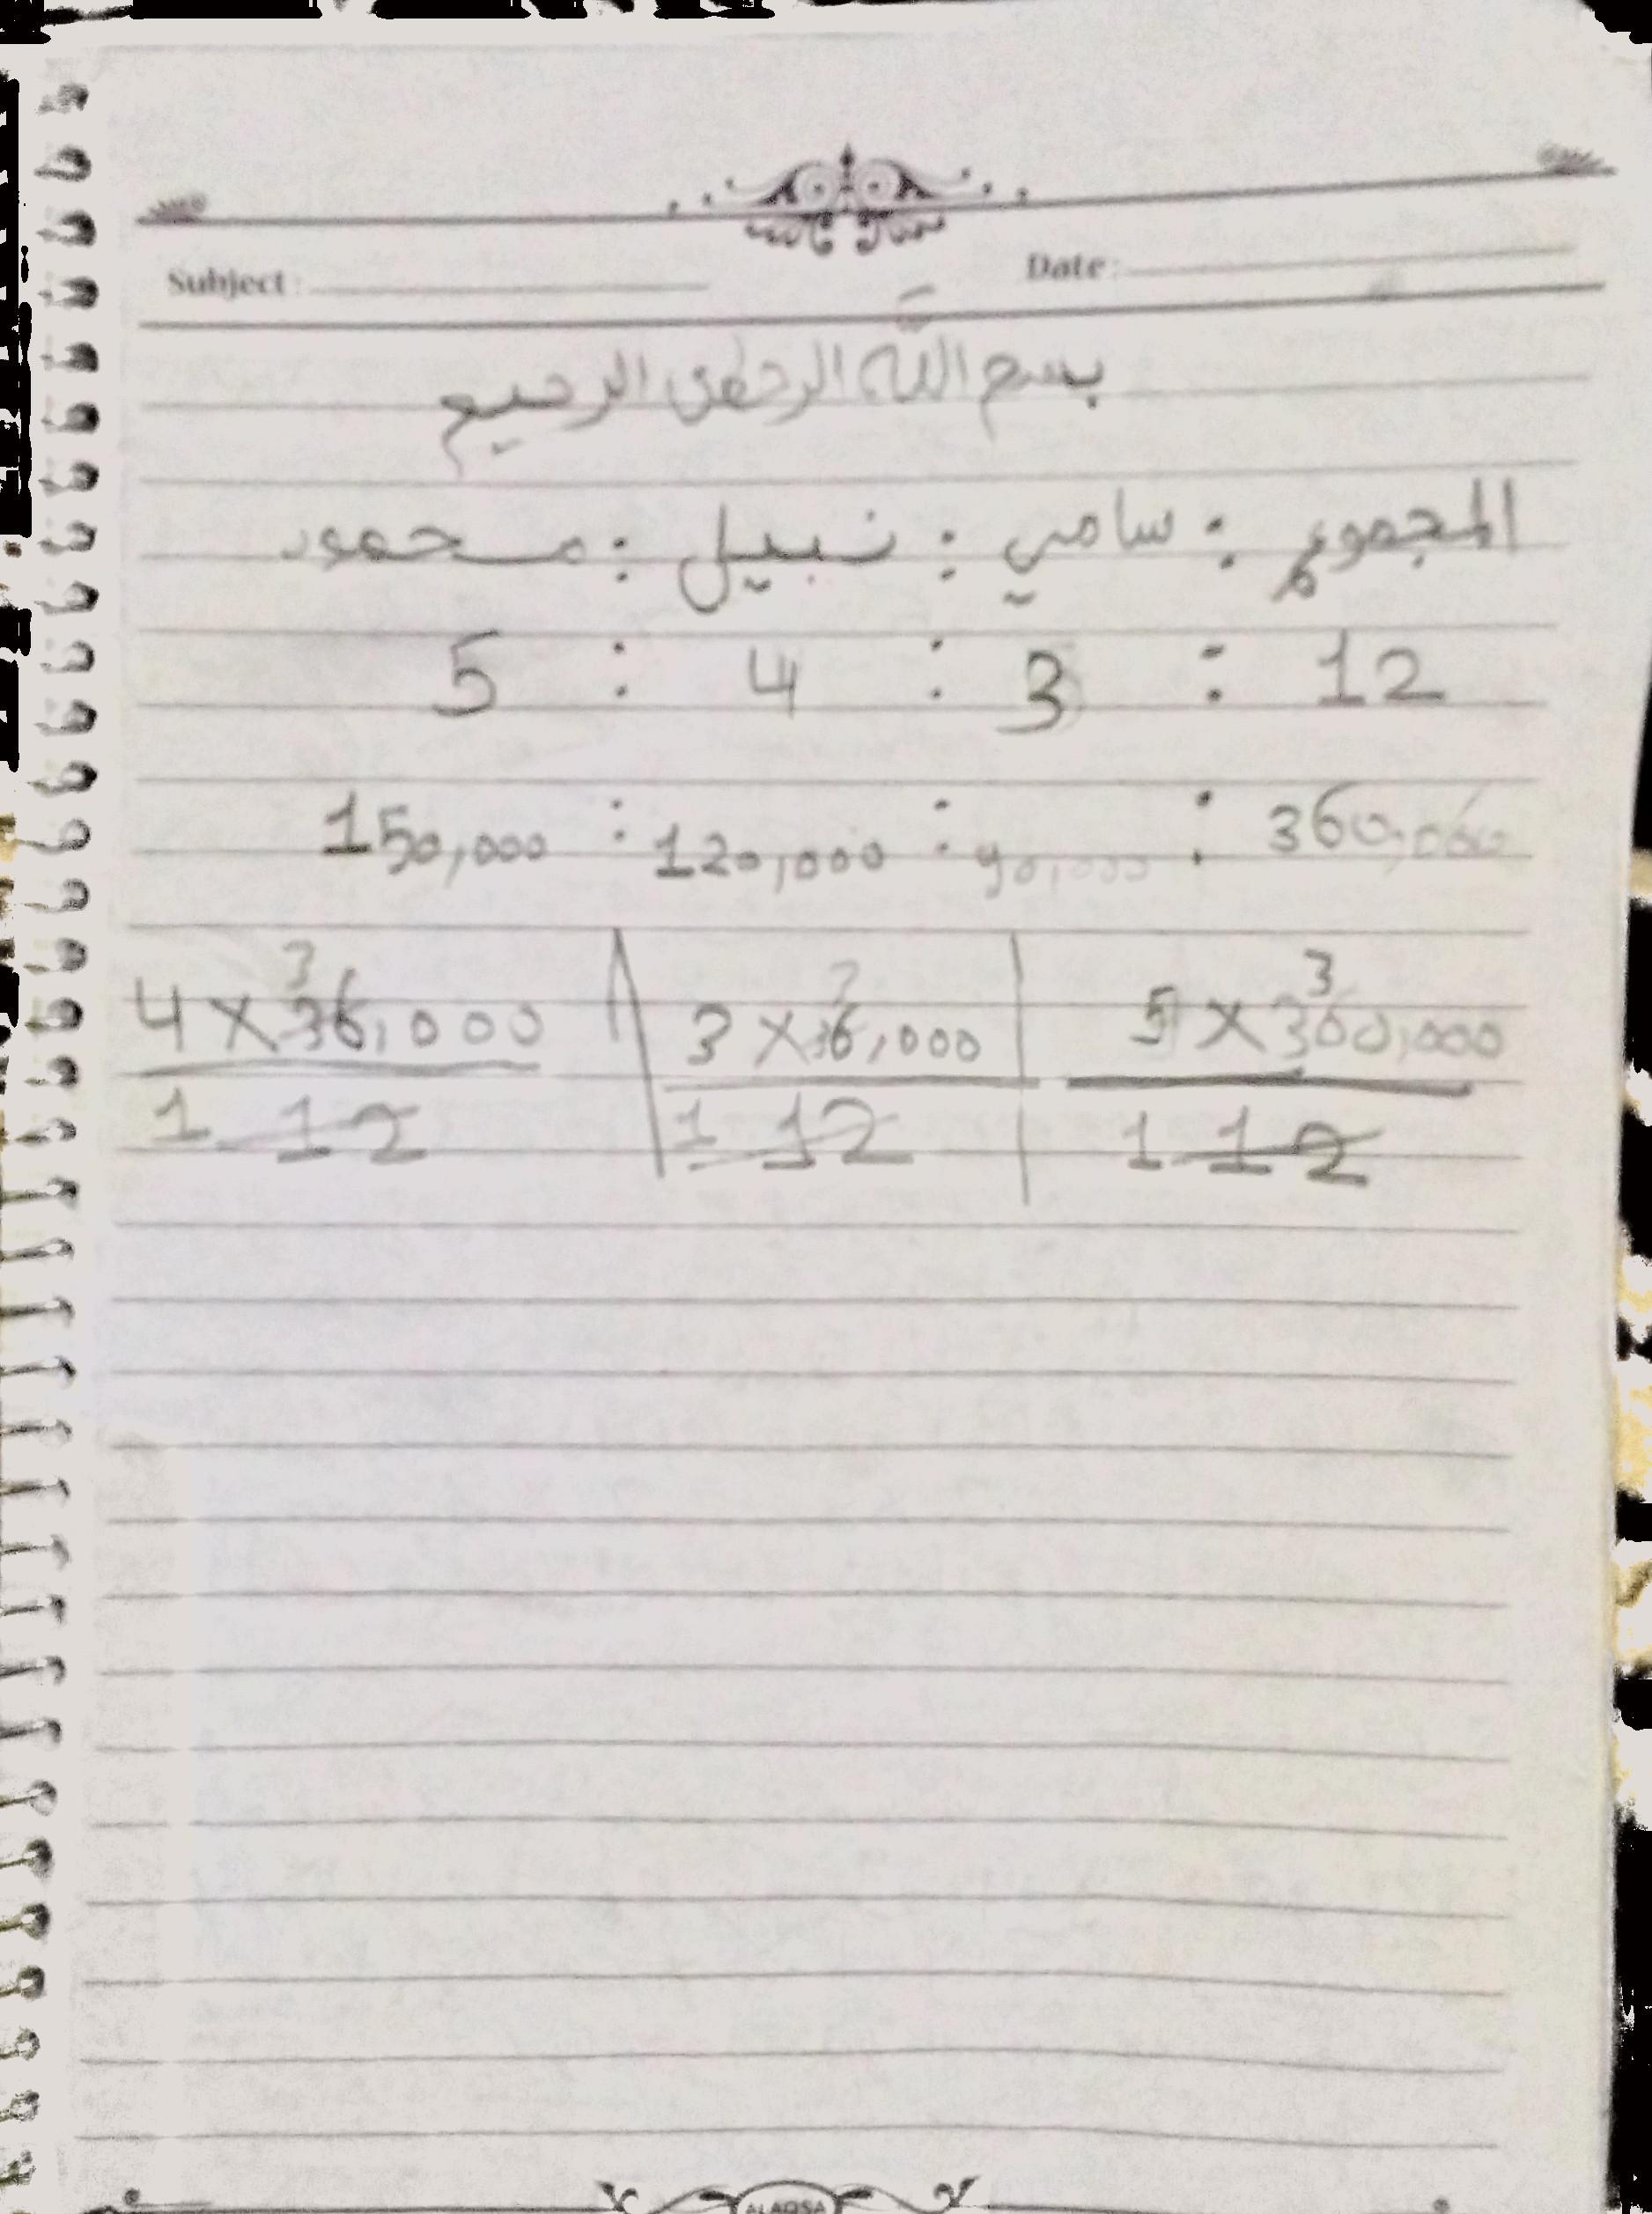 Subject: Date:
بسم الله الرحمن الرحيم
المجموع : سامي : نبيل : محمود
5 : 4 : 3 : 12
150,000 : 120,000 : 90,000 : 360,000
3 3 3
4 × 36,000 | 3 × 36,000 | 5 × 360,000
1 12 | 1 12 | 1 12
ALAQSA